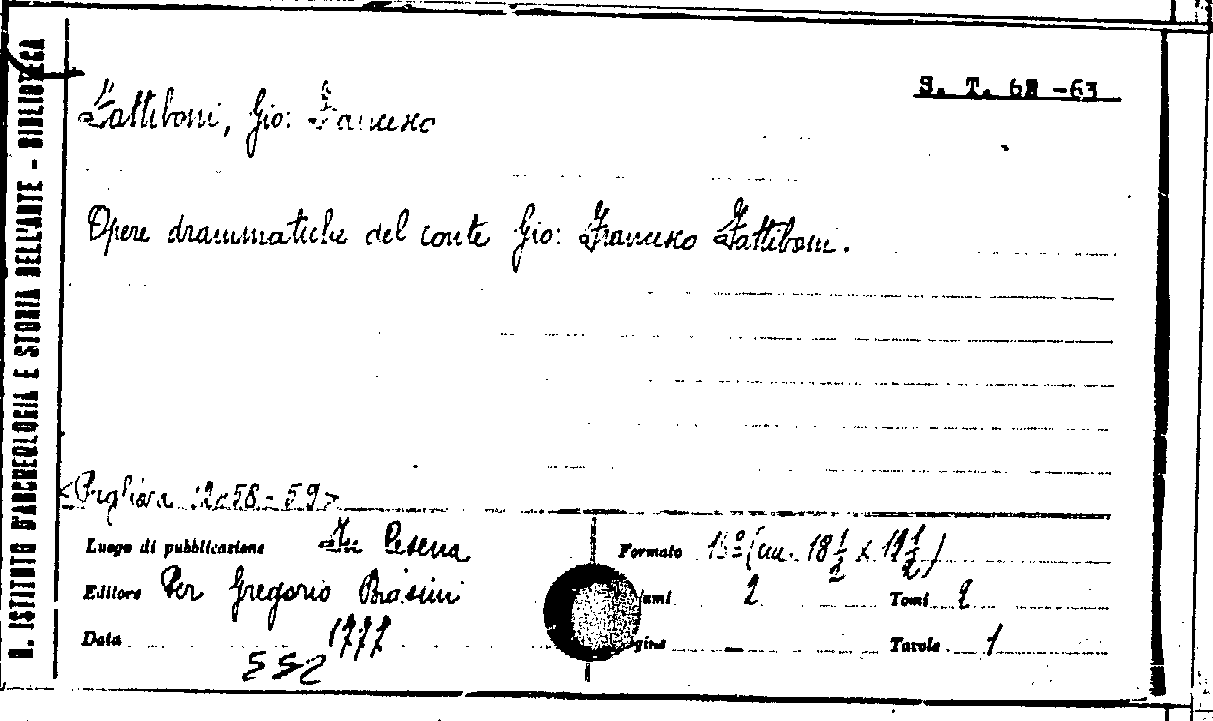 R. ISTITUTO D'ARCHEOLOGIA E STORIA DELL'ARTE - BIBLIOTECA
S. T. 62 -63
Fattiboni, Gio: Francesco
Opere drammatiche del conte Gio: Francesco Fattiboni.
<Pagliara 58-59>
Luogo di pubblicazione In Cesena Formato 16º (cm. 18 1/2 x 12 1/2)
Editore Per Gregorio Biasini umi 2 Tomi 2
Data 1777 gine Tavole 1
552